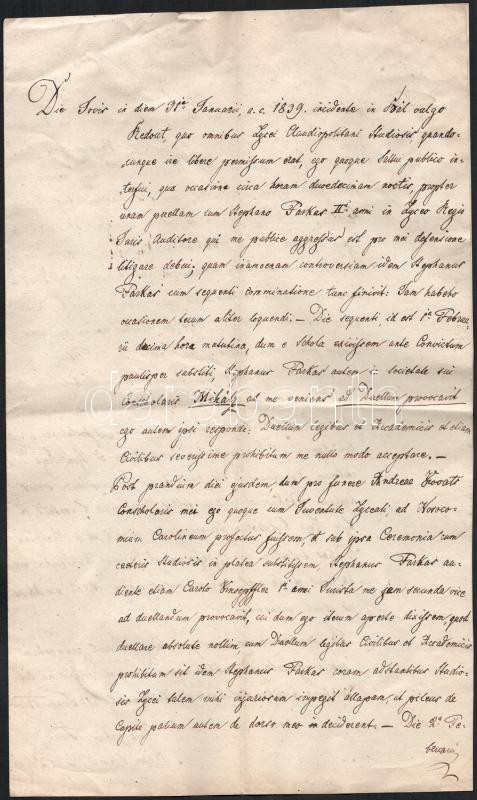 Die Jovis in diem 31ª Januarii, a. c. 1839. incidente in Bál vulgo
Redout, quo omnibus Lycei Claudiopolitani Studiosis quando-
cunque ire libere permissum erat, ego quoque Saltui publico in-
terfui, qua occasione circa horam duodecimam noctis, propter
unam puellam cum Stephano Farkas IIi anni in Lyceo Regio
Juris Auditore qui me publice aggressus est pro mei defensione
litigare debui, quam inamoenam controversiam idem Stephanus
Farkas cum sequenti comminatione tunc finivit: Jam habebo
occasionem tecum aliter loquendi. – Die sequenti, id est 1ª Februa-
rii decima hora matutina, dum e Schola exivissem ante Convictum
paulisper substiti, Stephanus Farkas autem in societate sui
Conscholaris Mihály ad me veniens ad Duellum provocavit
ego autem ipsi respondi: Duellum legibus et Academicis et etiam
Civilibus severissime prohibitum me nullo modo acceptare. –
Post prandium diei ejusdem dum pro funere Andreae Kovats
Conscholaris mei ego quoque cum Juventute Lyceali ad Nosoco-
mium Carolineum profectus fuissem, et sub ipsa Ceremonia cum
caeteris Studiosis in platea substitissem, Stephanus Farkas au-
diente etiam Carolo 1i anni Jurista me jam secunda vice
ad duellandum provocavit, cui dum ego iterum aperte dixissem, quod
duellare absolute nollim, cum Duellum legibus Civilibus et Academicis
prohibitum sit idem Stephanus Farkas coram adstantibus Studio-
sis Lycei talem mihi injuriosam impegit allapam, ut pileus de
Capite palium autem de dorso meo deciderent. – Die 2ª Fe-
bruarii
darabanth